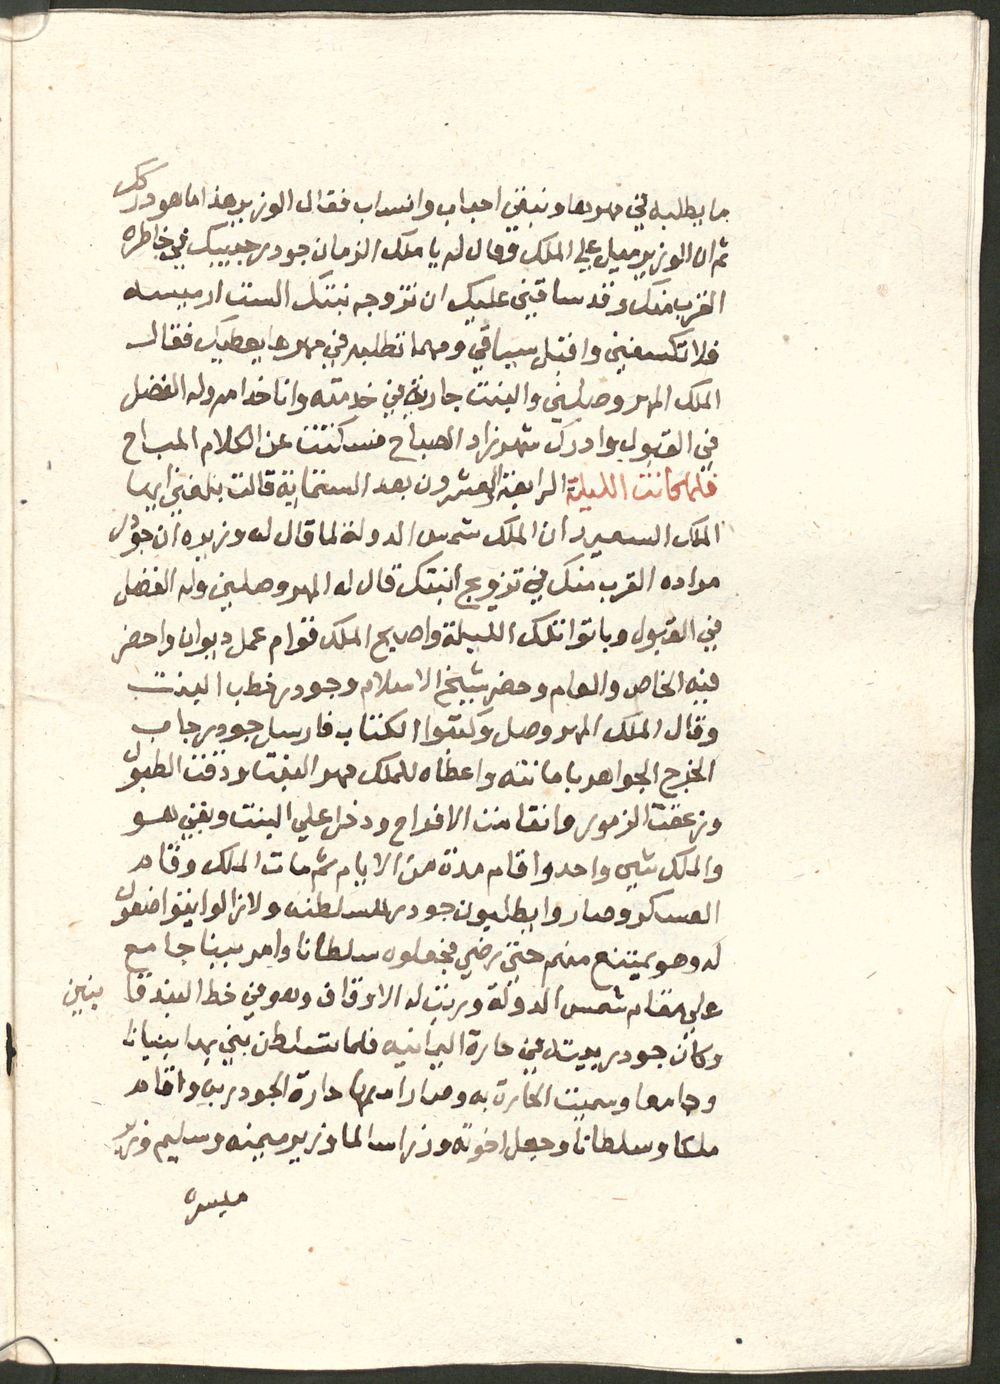 ما يطلبه في مهرها ونبقي احباب وانساب فقال الوزير هذا ما هو دركك
ثم ان الوزير ميل علي الملك وقال له يا ملك الزمان جودر حبيبك في خاطره
القرب منك وقد ساقني عليك ان تزوجه بنتك الست اسيه
فلا تكسفني واقبل سياقي ومهما تطلبه في مهرها يعطيك فقال
الملك المهر وصلني والبنت جاريه في خدمته وانا خدامه وله الفضل
في القبول وادرك شهرزاد الصباح فسكتت عن الكلام المباح
فلما كانت الليلة الرابعة والعشرون بعد الستماية قالت بلغني ايها
الملك السعيد ان الملك شمس الدولة لما قال له وزيره ان جودر
مراده القرب منك في تزويج ابنتك قال له المهر وصلني وله الفضل
في القبول وباتوا تلك الليلة واصبح الملك فقوام عمل ديوان واحضر
فيه الخاص والعام وحضر شيخ الاسلام وجودر خطب البنت
وقال الملك المهر وصل وكتبوا الكتاب فارسل جودر جاب
الخرج الجواهر بامانته واعطاه للملك مهر البنت ودقت الطبول
وزعقت الزمور وانقامت الافراح ودخل علي البنت وبقي هو
والملك شي واحد واقام مدة من الايام ثم مات الملك وقام
العسكر وصاروا يطلبون جودر للسلطنه ولا زالوا يتواضعون
له وهو يمتنع منهم حتي رضي فجعلوه سلطانا وامر ببنا جامع
علي مقام شمس الدولة ورتب له الاوقاف وهو في خط البندقا نيين
وكان جودر بيته في حارة اليمانيه فلما تسلطن بني بها بنيانا
وجامعا وسميت الحارة به وصار اسمها حارة الجودريه واقام
ملكا وسلطانا وجعل اخوته وزرا سالما وزير ميمنه وسليم وزير
ميسره